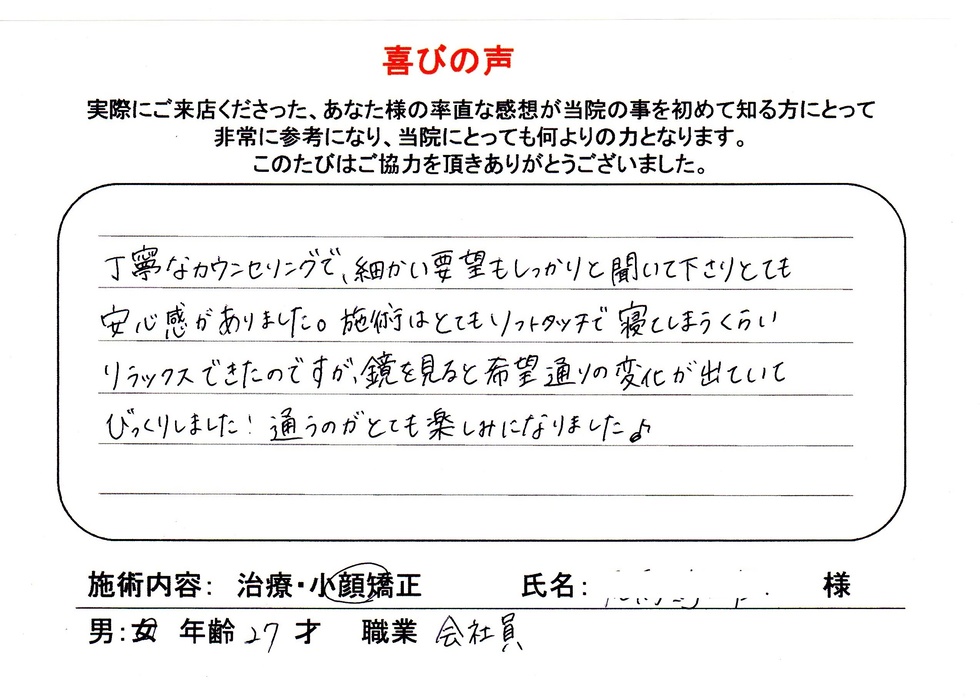 喜びの声
実際にご来店くださった、あなた様の率直な感想が当院の事を初めて知る方にとって
非常に参考になり、当院にとっても何よりの力となります。
このたびはご協力を頂きありがとうございました。
丁寧なカウンセリングで、細かい要望もしっかりと聞いて下さりとても
安心感がありました。施術はとてもソフトタッチで寝てしまうくらい
リラックスできたのですが、鏡を見ると希望通りの変化が出ていて
びっくりしました!通うのがとても楽しみになりました♪
施術内容: 治療・小顔矯正 氏名: 様
男:女 年齢 27 才 職業 会社員